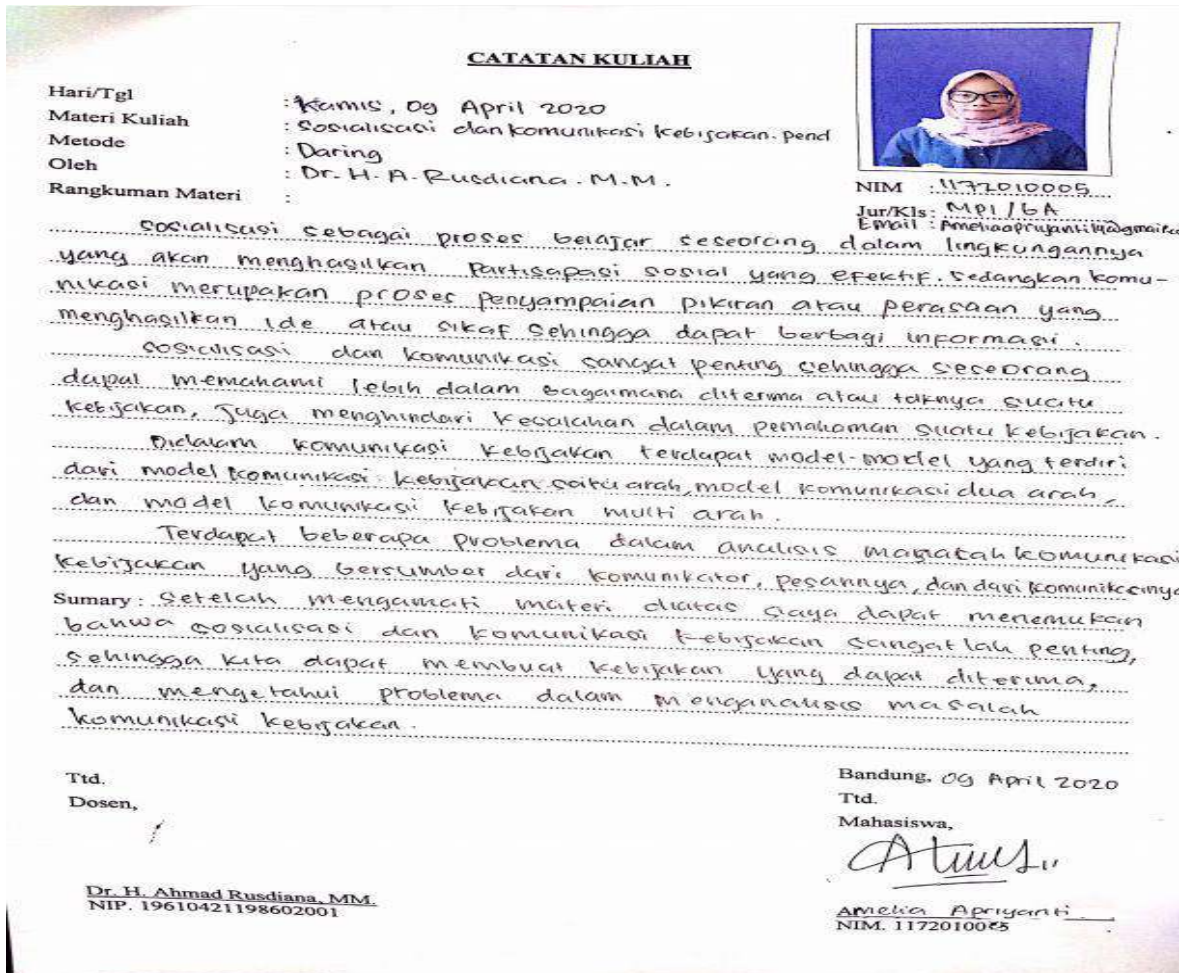 CATATAN KULIAH
Hari/Tgl : Kamis, 09 April 2020
Materi Kuliah : Sosialisasi dan komunikasi kebijakan. pend
Metode : Daring
Oleh : Dr. H. A. Rusdiana. M.M.
Rangkuman Materi :
NIM : 1172010005
Jur/Kls : MPI / 6A
Email :
Sosialisasi sebagai proses belajar seseorang dalam lingkungannya
yang akan menghasilkan Partisapasi sosial yang efektif. Sedangkan komu-
nikasi merupakan proses penyampaian pikiran atau perasaan yang
menghasilkan ide atau sikaf sehingga dapat berbagi informasi.
Sosialisasi dan komunikasi sangat penting sehingga seseorang
dapat memahami lebih dalam bagaimana diterima atau taknya suatu
kebijakan, Juga menghindari kesalahan dalam pemahaman suatu kebijakan.
Didalam komunikasi kebijakan terdapat model-model yang terdiri
dari model komunikasi kebijakan satu arah, model komunikasi dua arah,
dan model komunikasi kebijakan multi arah.
Terdapat beberapa problema dalam analisis masalah komunikasi
kebijakan yang bersumber dari komunikator, pesannya, dan dari
Sumary : Setelah mengamati materi diatas saya dapat menemukan
bahwa sosialisasi dan komunikasi kebijakan sangatlah penting,
sehingga kita dapat membuat kebijakan yang dapat diterima,
dan mengetahui problema dalam menganalisis masalah
komunikasi kebijakan.
Bandung, 09 April 2020
Ttd.
Dosen,
Dr. H. Ahmad Rusdiana, MM.
NIP. 19610421198602001
Ttd.
Mahasiswa,
Amelia Apriyanti
NIM. 1172010005